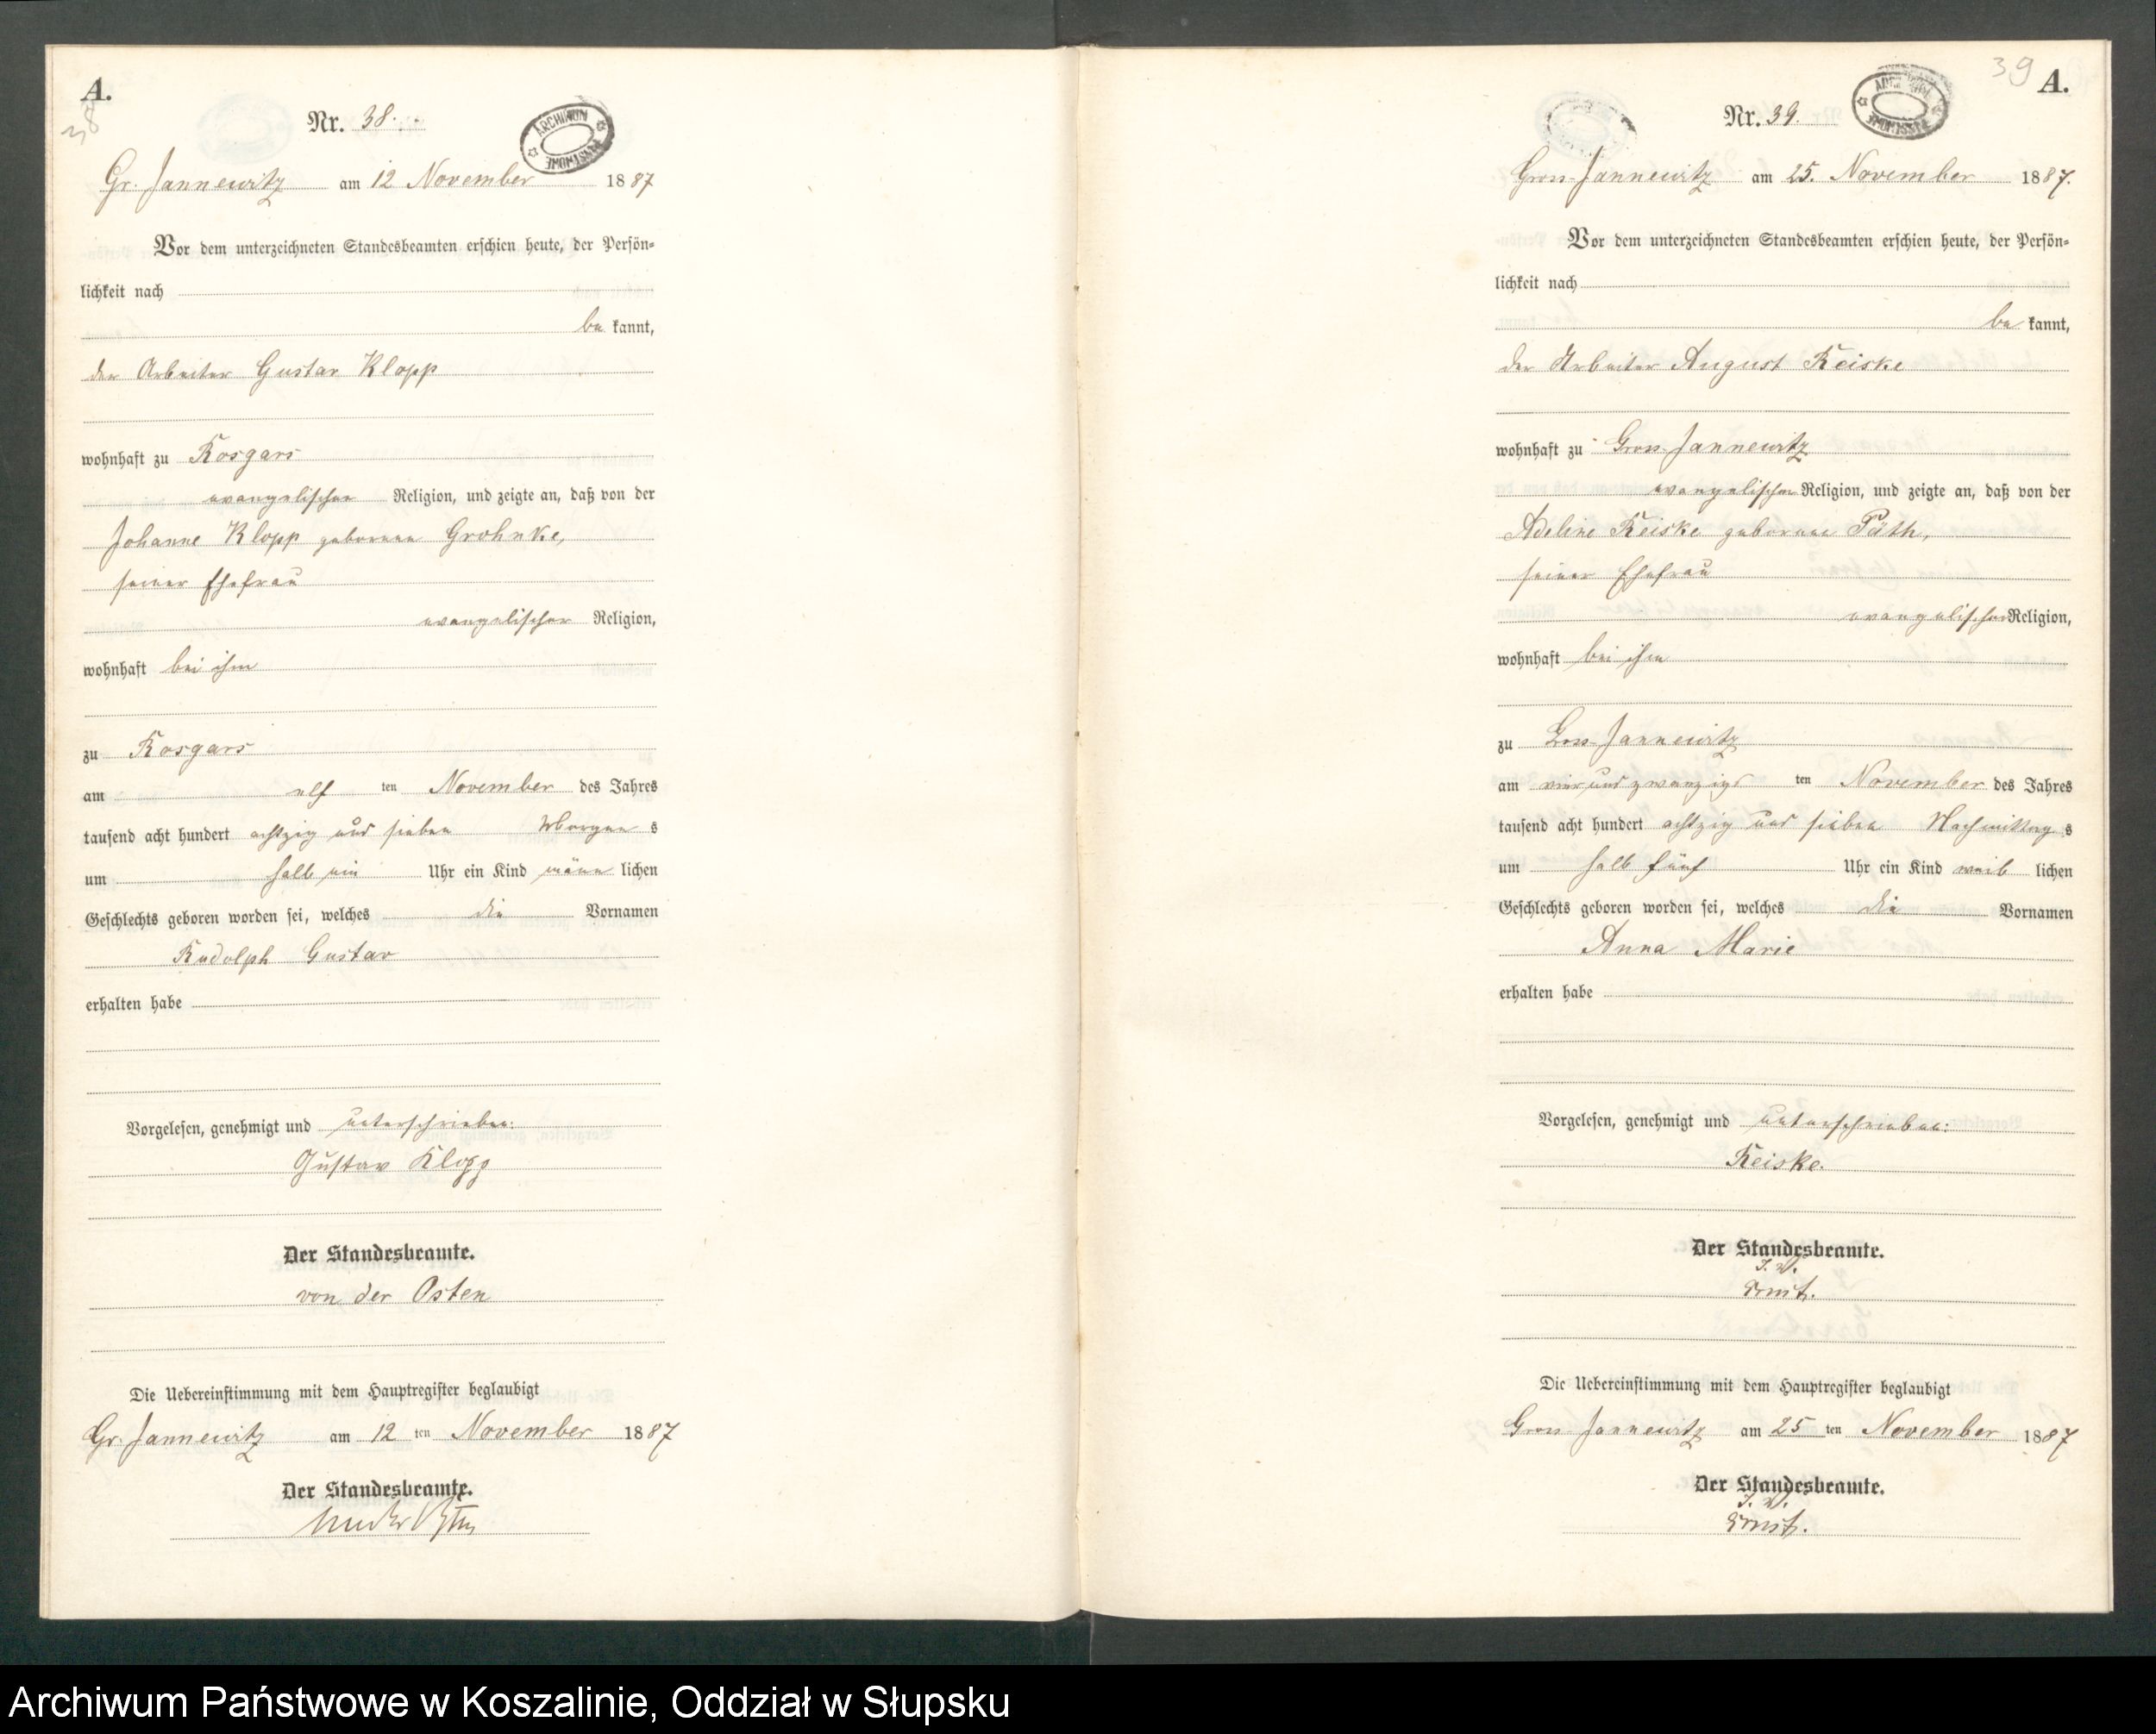 A.
38
Nr. 38.
ARCHIWUM PAŃSTWOWE
Gr. Jannewitz am 12 November 1887
Vor dem unterzeichneten Standesbeamten erschien heute, der Persön=
lichkeit nach
be kannt,
der Arbeiter Gustav Klopp
wohnhaft zu Rosgars
evangelischer Religion, und zeigte an, daß von der
Johanne Klopp geborenen Grohnke,
seiner Ehefrau
evangelischer Religion,
wohnhaft bei ihm
zu Rosgars
am elf ten November des Jahres
tausend acht hundert achtzig und sieben Morgen s
um halb ein Uhr ein Kind männ lichen
Geschlechts geboren worden sei, welches die Vornamen
Rudolph Gustav
erhalten habe
Vorgelesen, genehmigt und unterschrieben:
Gustav Klopp
Der Standesbeamte.
von der Osten
Die Uebereinstimmung mit dem Hauptregister beglaubigt
Gr. Jannewitz am 12 ten November 1887
Der Standesbeamte.
39 A.
Nr. 39.
Gross-Jannewitz am 25. November 1887.
Vor dem unterzeichneten Standesbeamten erschien heute, der Persön=
lichkeit nach
be kannt,
der Arbeiter August Reiske
wohnhaft zu Gross-Jannewitz
evangelischer Religion, und zeigte an, daß von der
Adeline Reiske geborene Päth,
seiner Ehefrau
evangelischer Religion,
wohnhaft bei ihm
zu Gross-Jannewitz
am vier und zwanzigs ten November des Jahres
tausend acht hundert achtzig und sieben Nachmittag s
um halb fünf Uhr ein Kind weib lichen
Geschlechts geboren worden sei, welches die Vornamen
Anna Marie
erhalten habe
Vorgelesen, genehmigt und unterschrieben:
Reiske.
Der Standesbeamte.
I. V.
Ernst.
Die Uebereinstimmung mit dem Hauptregister beglaubigt
Gross-Jannewitz am 25 ten November 1887
Der Standesbeamte.
I. V.
Ernst.
Archiwum Państwowe w Koszalinie, Oddział w Słupsku